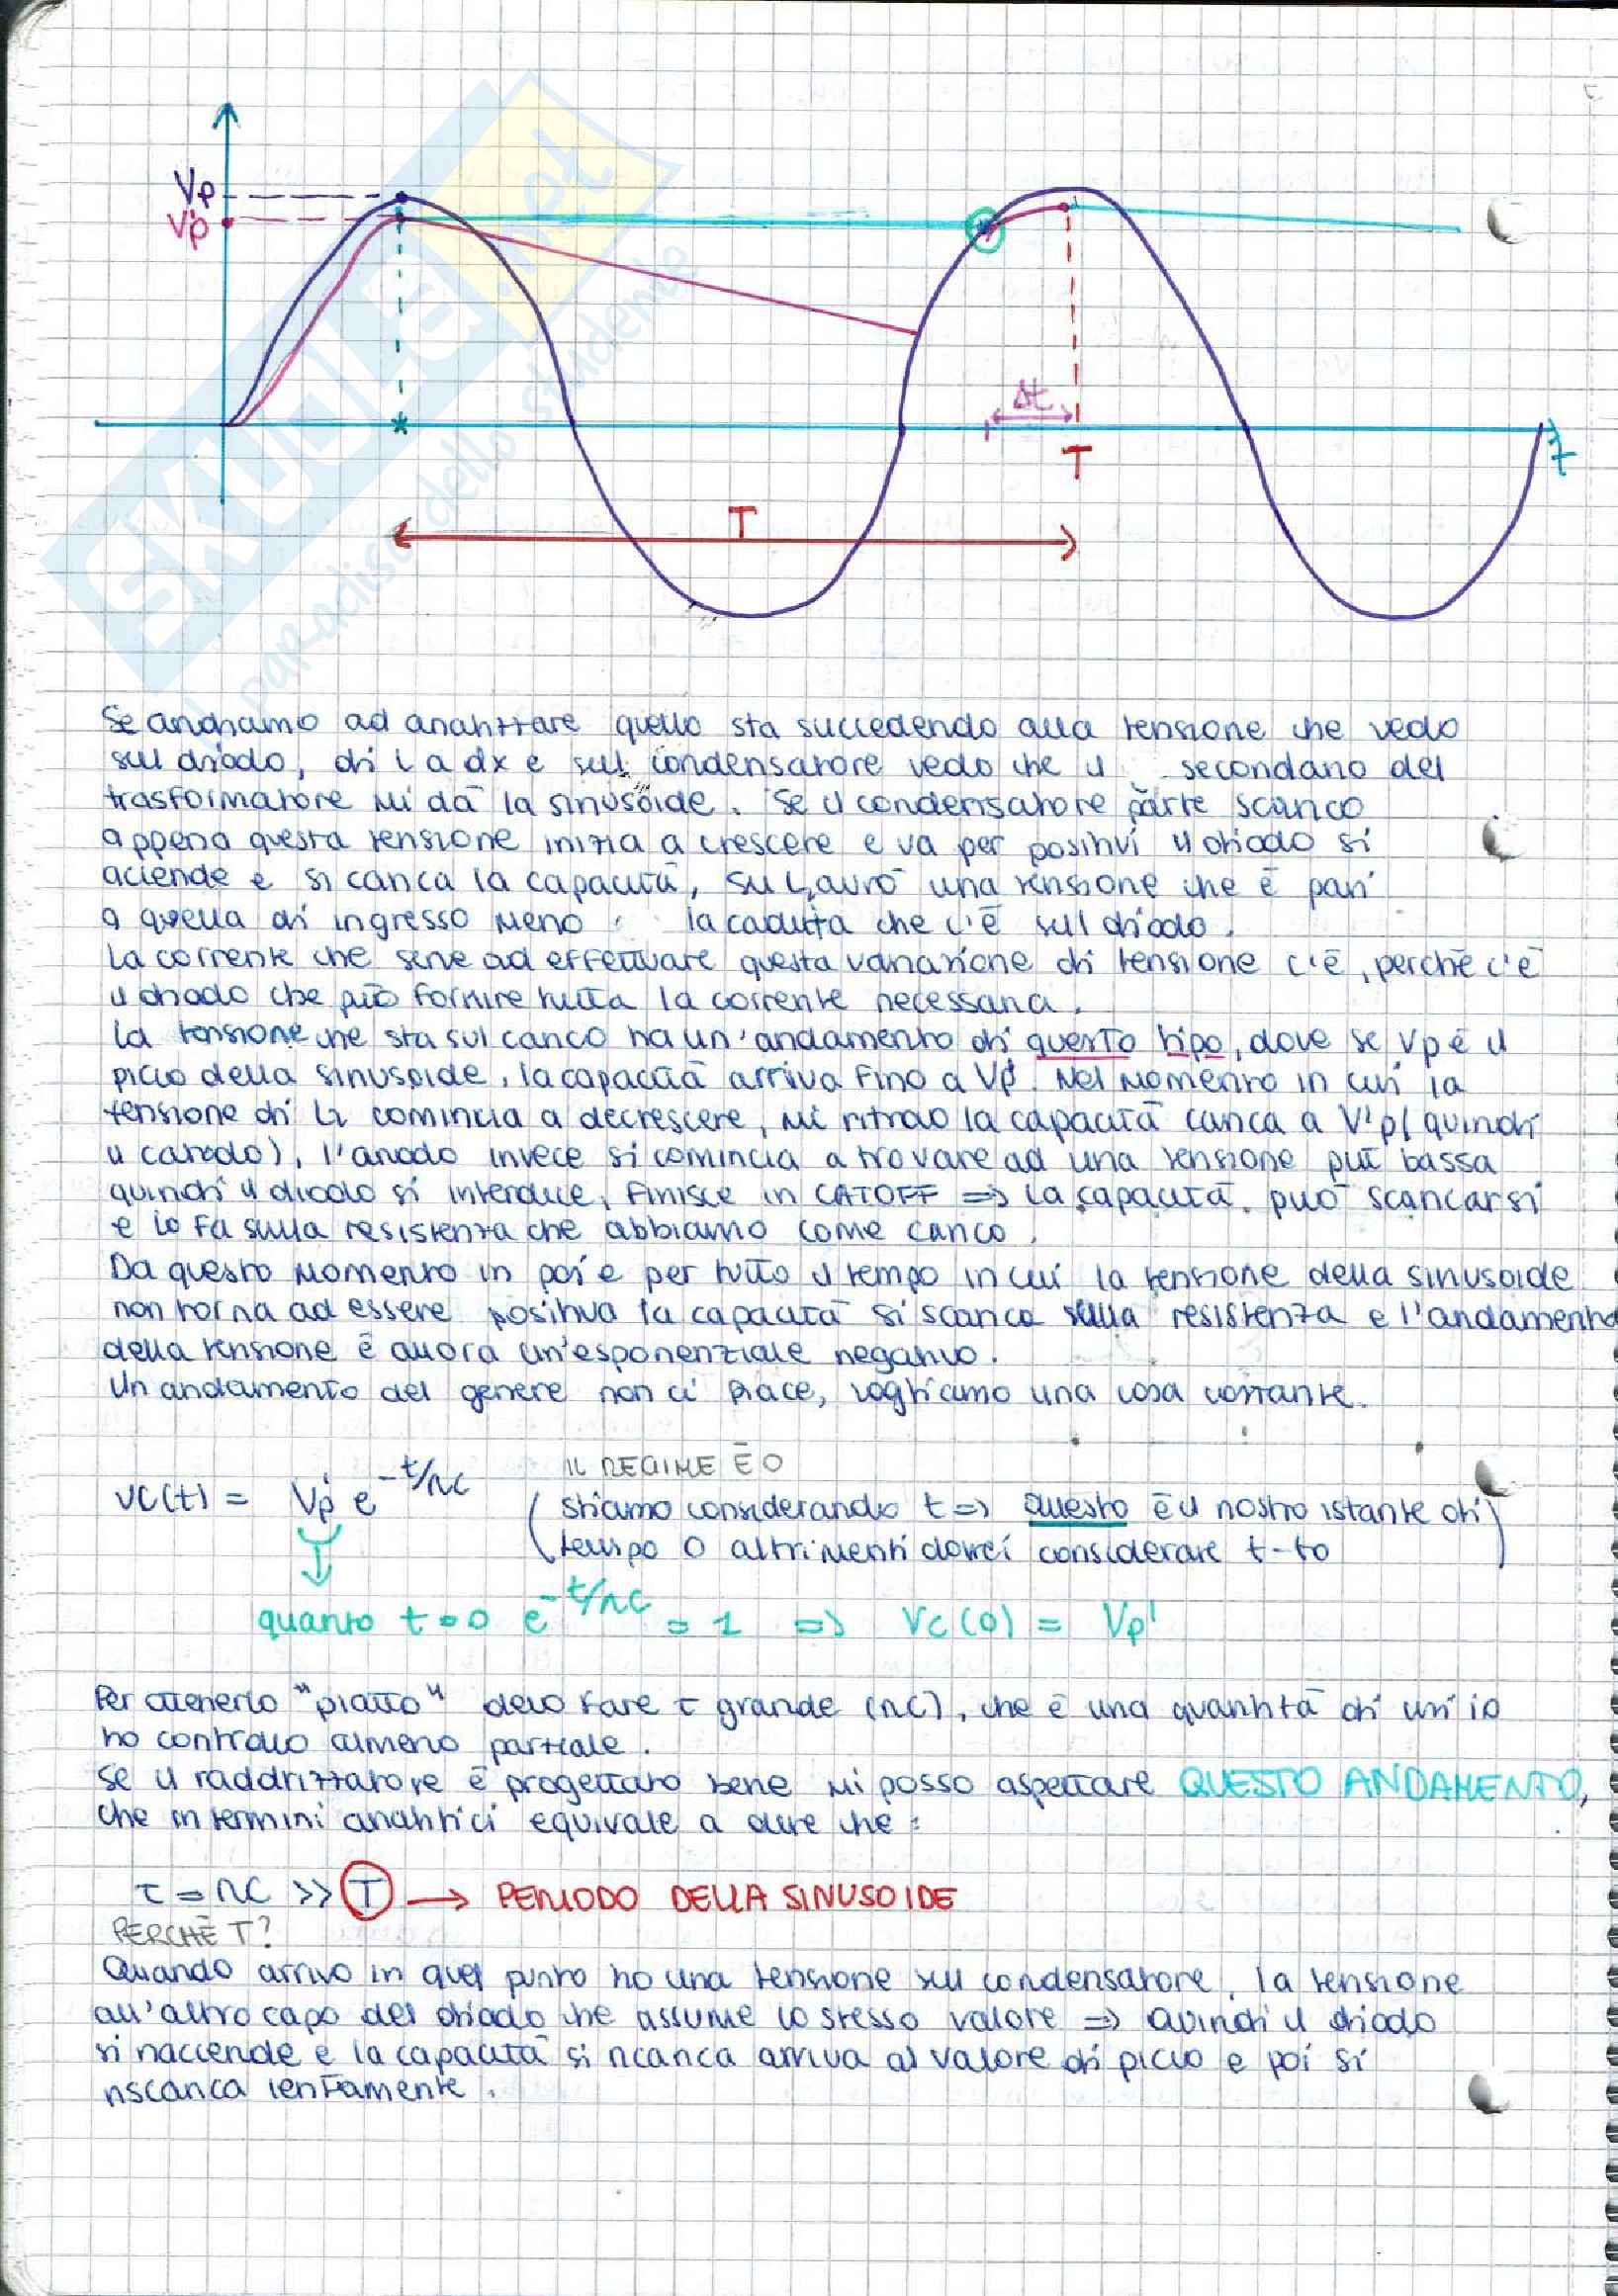 Vp
V'p
Δt
T
t
T
SKUOLA.net
il paradiso dello studente
Se andiamo ad analizzare quello sta succedendo alla tensione che vedo
sul diodo, di L a dx e sul condensatore vedo che il secondario del
trasformatore mi dà la sinusoide. Se il condensatore parte scarico
appena questa tensione inizia a crescere e va per positivi il diodo si
aciende e si carica la capacità, su L avrò una tensione che è pari
a quella di ingresso meno la caduta che c'è sul diodo.
La corrente che serve ad effettuare questa variazione di tensione c'è, perchè c'è
il diodo che può fornire tutta la corrente necessaria.
La tensione che sta sul carico ha un'andamento di questo tipo, dove se Vp è il
picco della sinusoide, la capacità arriva fino a V'p. Nel momento in cui la
tensione di L comincia a decrescere, mi ritrao la capacità carica a V'p (quindi
il catodo), l'anodo invece si comincia a trovare ad una tensione più bassa
quindi il diodo si interdice, finisce in CATOFF => la capacità può scaricarsi
e lo fa sulla resistenza che abbiamo come carico.
Da questo momento in poi e per tutto il tempo in cui la tensione della sinusoide
non torna ad essere positiva la capacità si scarica sulla resistenza e l'andamento
della tensione è allora un'esponenziale negativo.
Un andamento del genere non ci piace, vogliamo una cosa costante.
IL REGIME È 0
vc(t) = V'p e^-t/RC (stiamo considerando t => questo è il nostro istante di
tempo 0 altrimenti dovrei considerare t-to)
quanto t=0 e^-t/RC = 1 => Vc(0) = Vp'
Per ottenerlo "piatto" devo fare τ grande (RC), che è una quantità di cui io
ho controllo almeno parziale.
Se il raddrizzatore è progettato bene mi posso aspettare QUESTO ANDAMENTO,
che in termini analitici equivale a dire che:
τ = RC >> T → PERIODO DELLA SINUSOIDE
PERCHÈ T?
Quando arrivo in quel punto ho una tensione sul condensatore, la tensione
all'altro capo del diodo che assume lo stesso valore => Quindi il diodo
si riaccende e la capacità si ricarica arriva al valore di picco e poi si
riscarica lentamente.